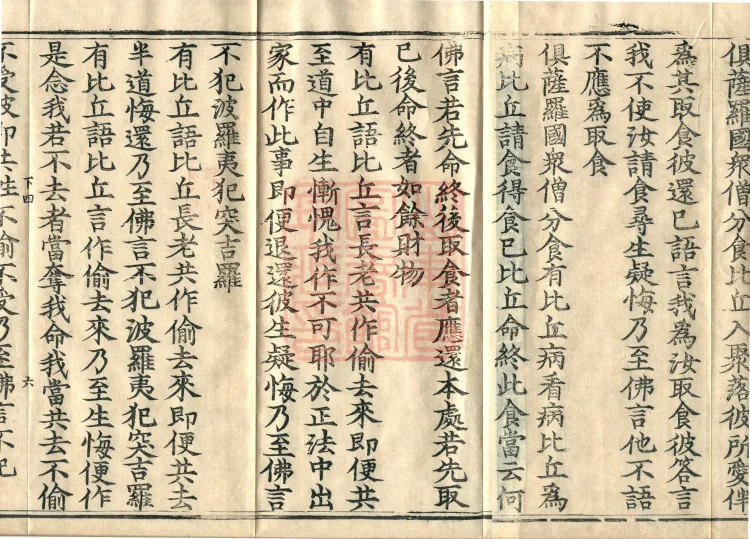 俱薩羅國衆僧分食比丘入聚落彼所愛伴
爲其取食彼還已語言我爲汝取食彼答言
我不使汝請食尋生疑悔乃至佛言他不語
不應爲取食
俱薩羅國衆僧分食有比丘病看病比丘爲
病比丘請食得食已比丘命終此食當云何
佛言若先命終後取食者應還本處若先取
已後命終者如餘財物
有比丘語比丘言長老共作偷去來即便共
至道中自生慚愧我作不可耶於正法中出
家而作此事即便退還彼生疑悔乃至佛言
不犯波羅夷犯突吉羅
有比丘語比丘長老共作偷去來即便共去
半道悔還乃至佛言不犯波羅夷犯突吉羅
有比丘語比丘言作偷去來乃至生悔便作
是念我若不去者當奪我命我當共去不偷
下四
六
不受彼即共往不偷不受乃至佛言不犯